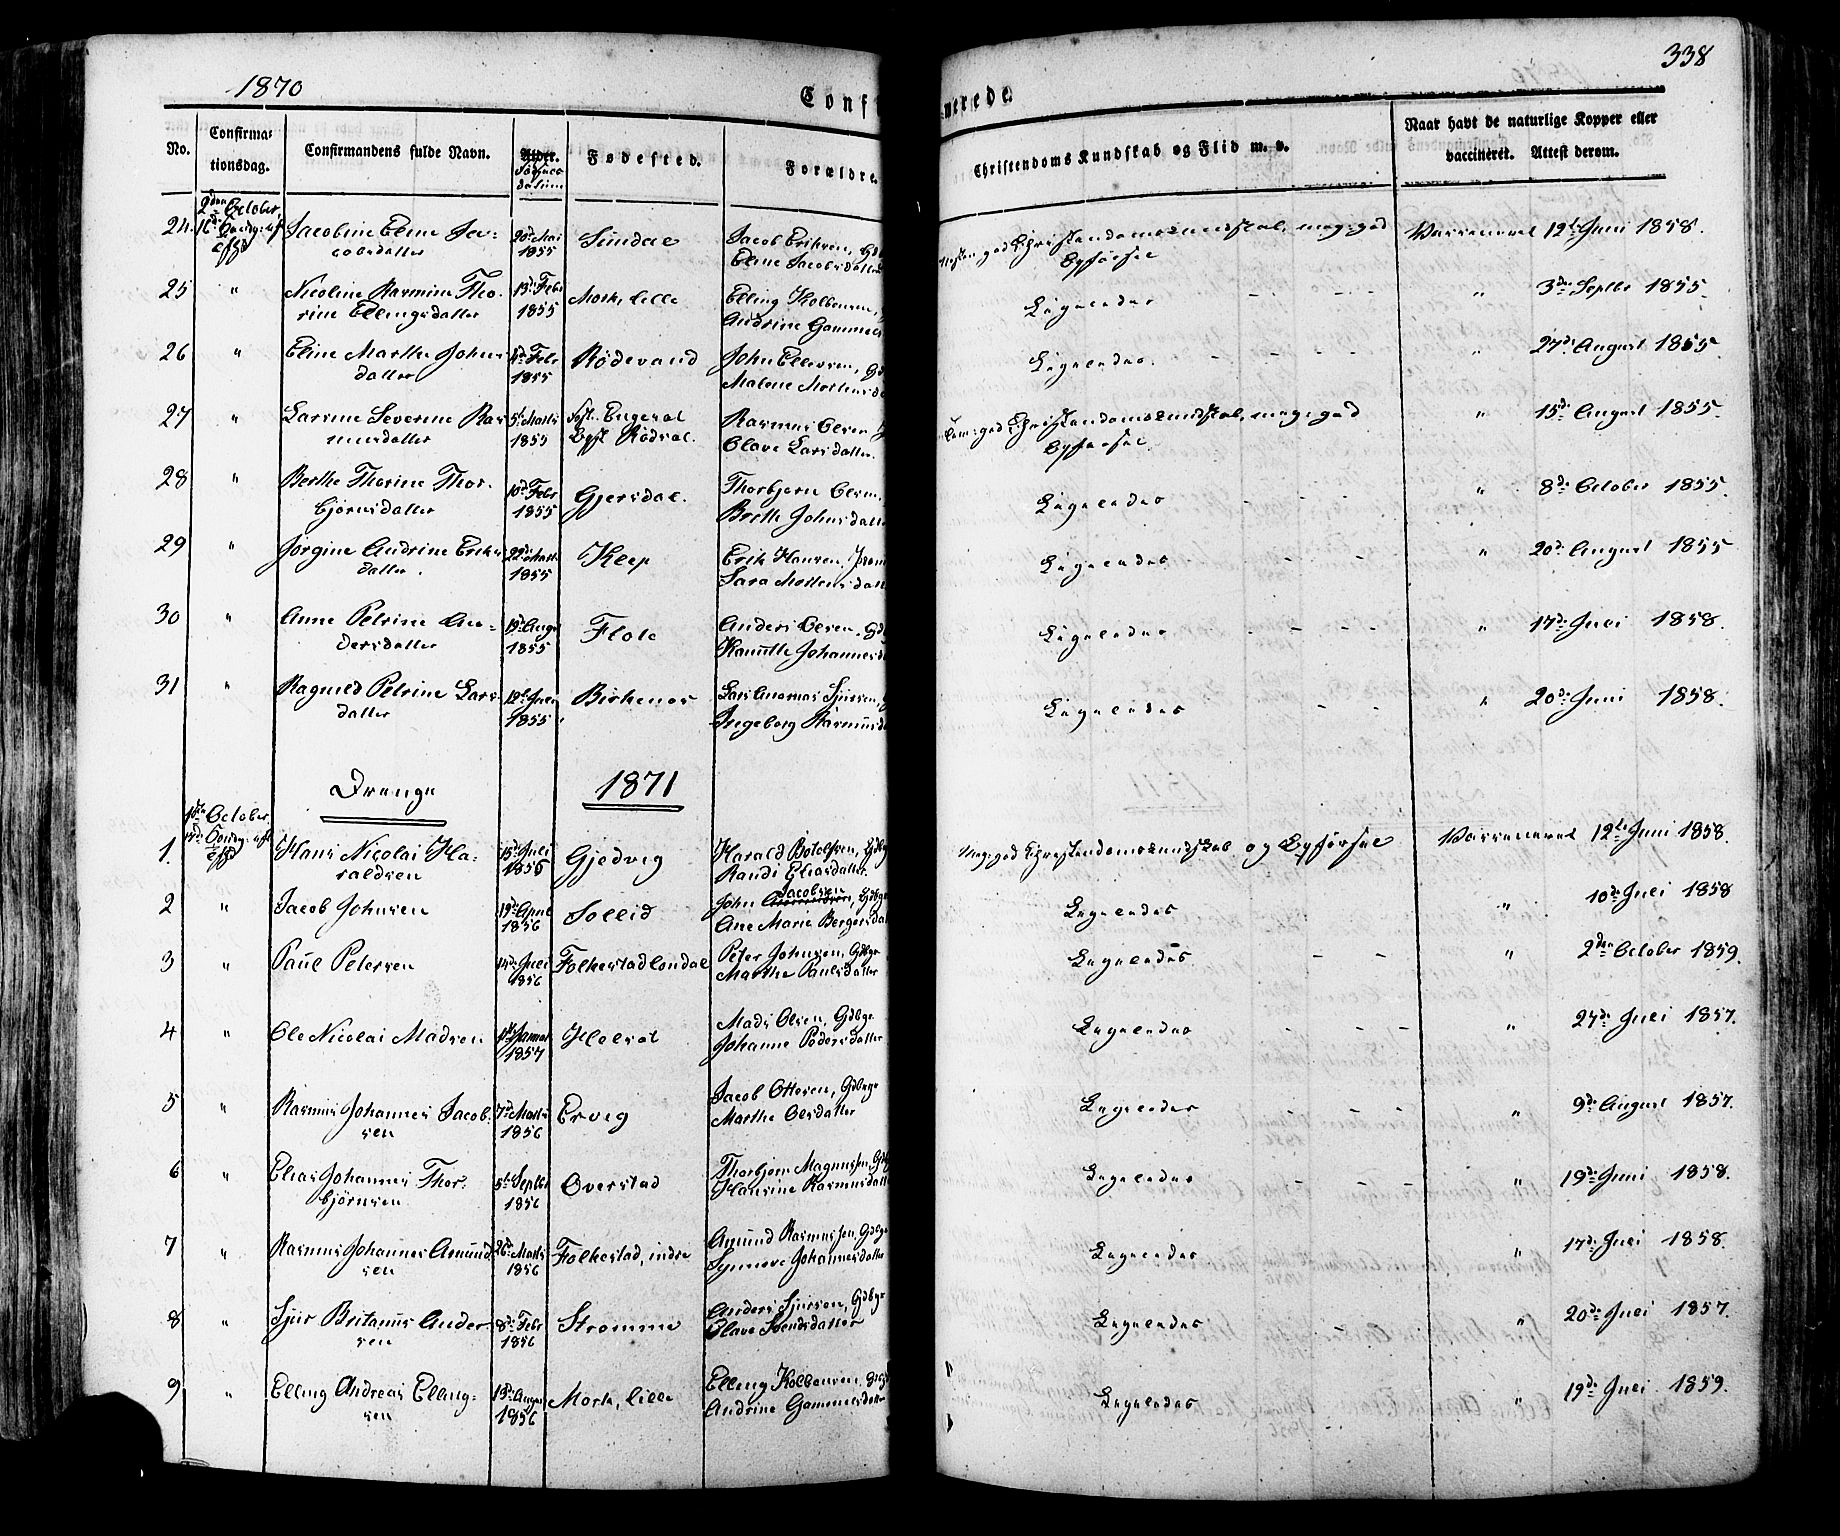 338
1870
Confi merede
No.
Confirma-
tionsdag.
Confirmandens fulde Navn.
Alder.
Fødested.
Forældre
Christendoms Kundskab og Flid m. v.
Naar havt de naturlige Kopper eller
vaccineret. Attest derom.
2den October,
24 Jacobine Eline Ja-
cobsdatter
20de Mai
1855
Sundal
Jacob Eriksen, Gd
Eline Jacobsdatter
god Christendomskundskab, meg: god
Opførsel
Vaccineret 12te Juni 1858.
25 " Nicoline Rasmine Tho-
rine Ellingsdatter
13de Febr
1855
Mork, lille
Elling Kolbensen,
Andrine Gammels
Ligeledes - - - " 3die Septbr 1855.
26 " Eline Marthe Johns
datter
Febr
1855
Rødevand
John Ellevsen, Gd
Malene Mortensd
Ligeledes. - - - " 27de August 1855.
27 " Larsine Severine Ras
musdatter
5te Marts
1855
Føst. Engeset
Opfst Rødset.
Rasmus Olsen
Olave Larsdatter.
god Christendomskundskab, meg: god
Opførsel
" 15de August 1855.
28 " Berthe Thorine Thor-
bjørnsdatter
10de Febr
1855
Gjersdal.
Thorbjørn Olsen,
Berthe Johnsdatter
Ligeledes - - - " 8de October 1855.
29 " Jørgine Andrine Eriks
datter.
22de Marts
1855
Kleep
Erik Hansen,
Sara Mortensdatt
Ligeledes - - - " 20de August 1855
30 " Anne Petrine An-
dersdatter
19de Augu
1855
Flote
Anders Olsen, Gd
Kanutte Johannesd
Ligeledes - - - " 17de Juli 1858.
31 " Ragnild Petrine Lars-
datter
12te Juli
1855
Birkenes
Lars Andreas Sjursen,
Ingeborg Rasmusd
Ligeledes - - " 20de Juni 1858.
Drenge 1871
1ste October
1. Hans Nicolai Ha-
raldsen
15de Juli
1856
Gjedvig
Harald Botolfsen, Gdbgr
Randi Eliasdatter
Meg: god Christendomskundskab og Opførsel
Vaccineret 12te Juni 1858.
2 " Jacob Johnsen
19de April
1856
Sollid
Jacobsen
John , Gdbgr
Ane Marie Bergersdat
Ligeledes " 10de Juli 1858
3 " Paul Petersen
14de Juli
1856
Folkestadlondal
Peter Johnsen, Gdbgr
Marthe Paulsdatter
Ligeledes - - " 2den October 1859.
4 " Ole Nicolai Madsen
Januar
1857
Helset
Mads Olsen, Gdbgr
Johanne Pedersdatter
Ligeledes - - - " 27de Juli 1857.
5 " Rasmus Johannes Jacob-
sen
7de Marts
1856
Ervig
Jacob Ottesen, Gdbgr
Marthe Olsdatter
Ligeledes - - - " 9de August 1857.
6 " Elias Johannes Thor-
bjørnsen
5te Septbr
1856
Overstad
Thorbjørn Magnussen, Gdb
Hansine Rasmusdatt
Ligeledes - - - " 19de Juni 1858.
7 " Rasmus Johannes Amund-
sen
26de Marts
1856
Folkestad, indre
Amund Rasmussen, Gdbgr
Synneve Johannesdatter
Ligeledes " 17de Juli 1858.
8 " Sjur Britanus Ander-
sen
8de Febr
1856
Strømme
Anders Sjursen, Gdbgr
Olave Svendsdatter
Ligeledes - " 20de Juli 1857.
9 " Elling Andreas Elling-
sen
13de August
1856
Mork, lille
Elling Kolbensen,
Andrine Gammelsdatter
Ligeledes " 19de Juli 1859.